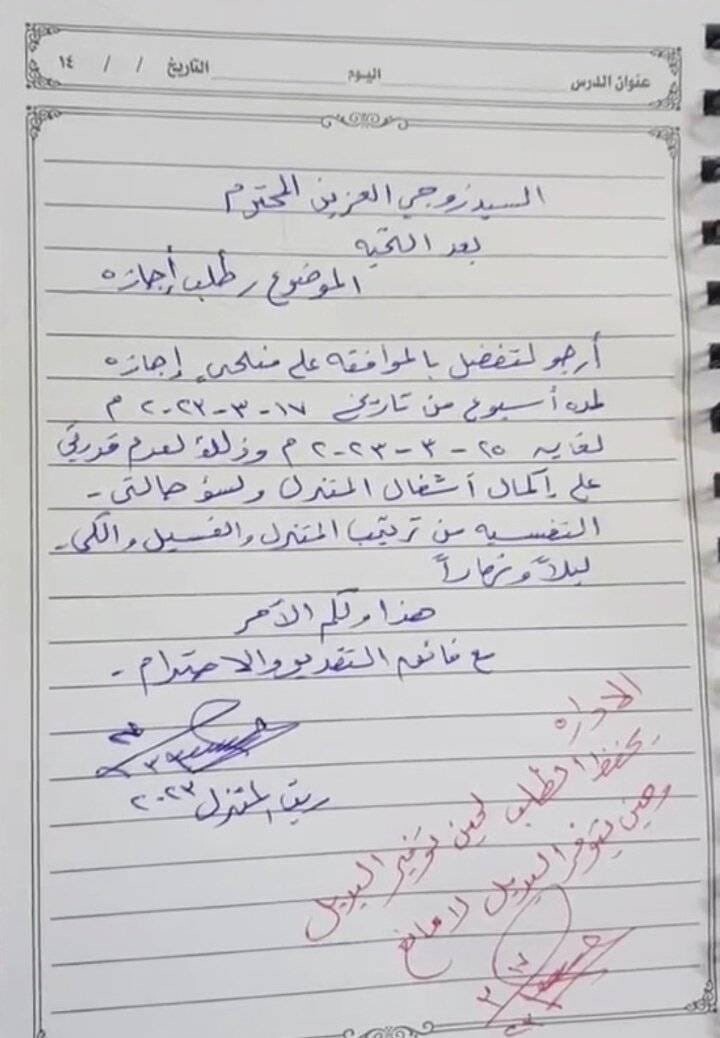 عنوان الدرس اليوم التاريخ / / ١٤
السيد زوجي العزيز المحترم
بعد التحيه
الموضوع / طلب أجازه
أرجو لتفضل بالموافقه على منحي إجازه
لمده أسبوع من تاريخ ١٧-٣-٢٠٢٣ م
لغايه ٢٥-٣-٢٠٢٣ م وذلك لعدم قدرتي
على إكمال أشغال المنزل ولسؤ حالتي -
النفسيه من ترتيب المنزل والغسيل والكي -
ليلاً ونهاراً
هذا ولكم الأمر
مع فائق التقدير والاحترام -
ربة المنزل ٢٠٢٣
الاداره
يحفظ الطلب لحين توفير البديل
وحين يتوفر البديل لا مانع